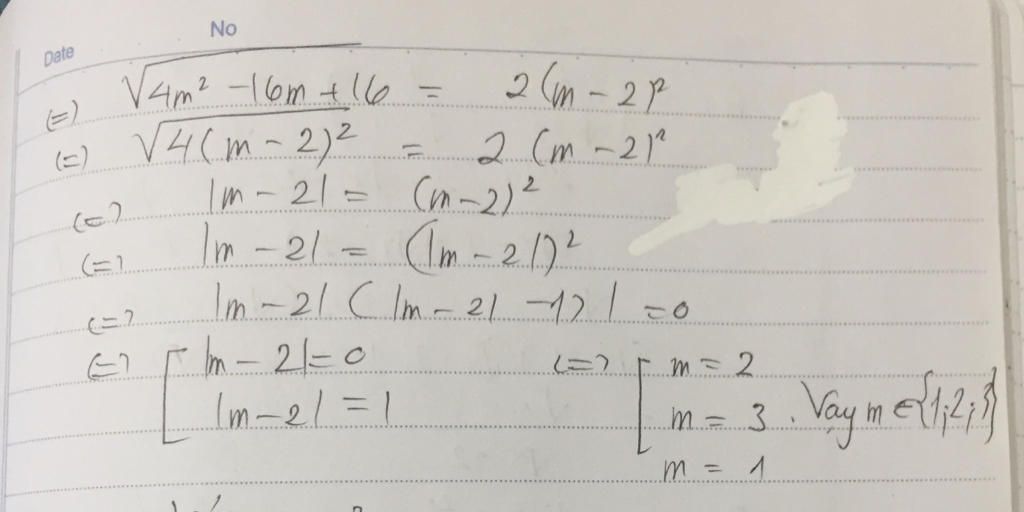 No
Date
(=) √4m² -16m + 16 = 2(m - 2)²
(=) √4(m - 2)² = 2 (m - 2)²
(=) |m - 2| = (m-2)²
(=) |m - 2| = (|m - 2|)²
(=) |m - 2| ( |m - 2| -1) | = 0
(=) [ |m - 2| = 0 (=) [ m = 2
|m - 2| = 1 m = 3 . Vậy m ∈ {1;2;3}
m = 1